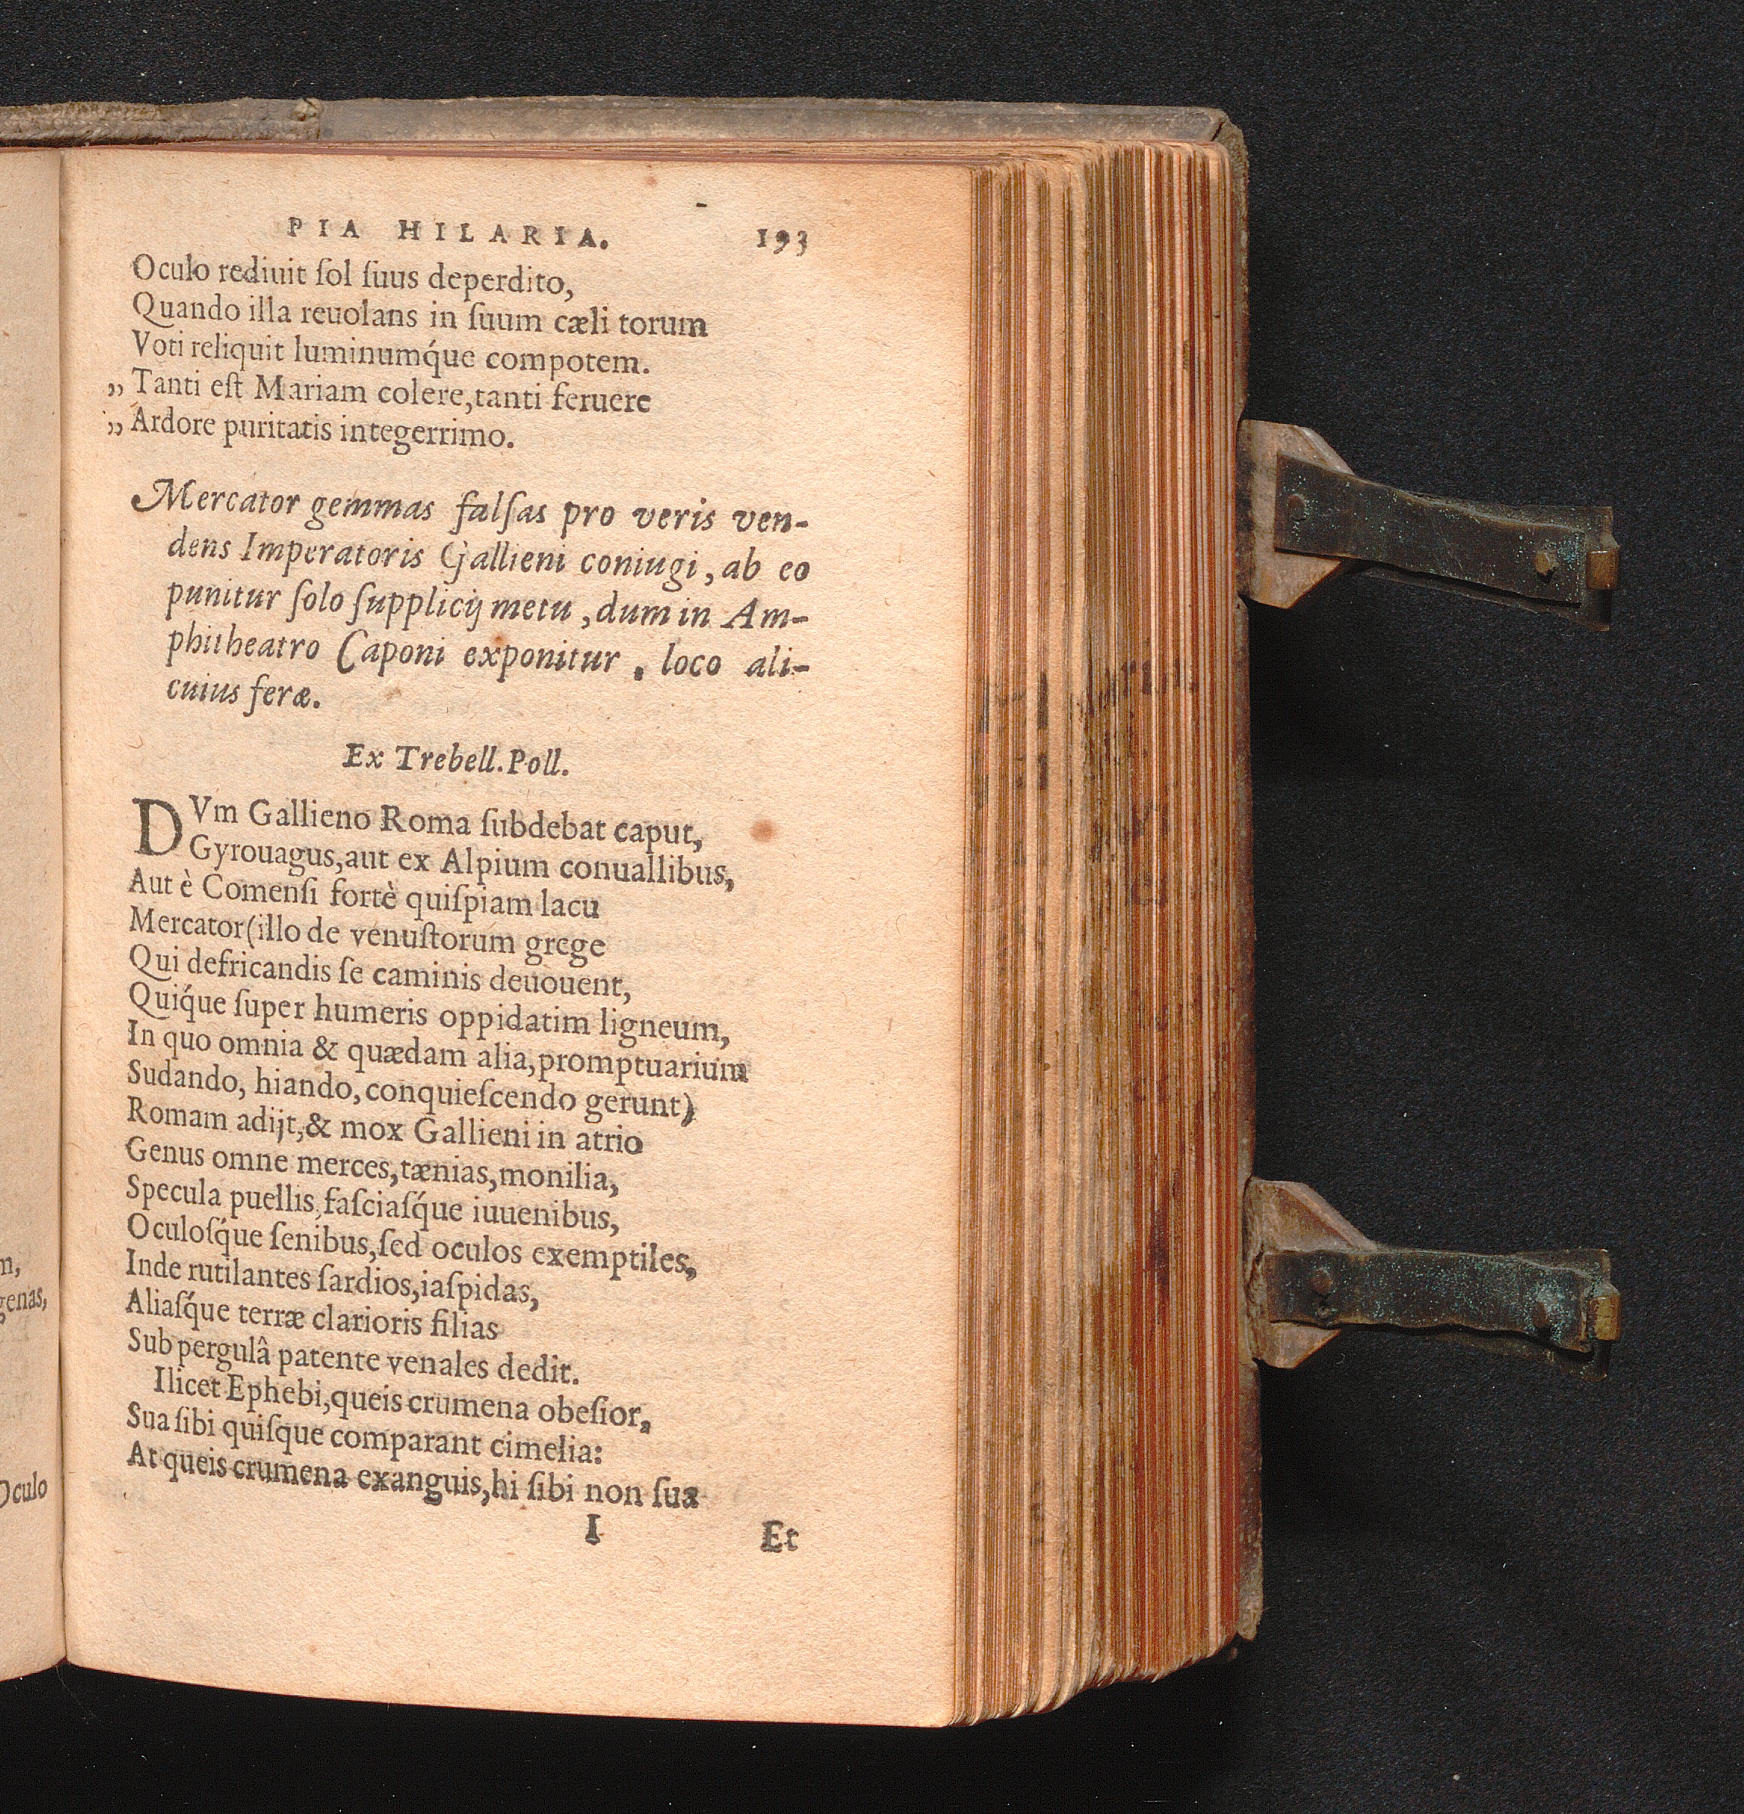 PIA HILARIA. 193
Oculo rediuit ſol ſuus deperdito,
Quando illa reuolans in ſuum cæli torum
Voti reliquit luminumq́ue compotem.
„ Tanti eſt Mariam colere,tanti feruere
„ Ardore puritatis integerrimo.
Mercator gemmas falſas pro veris ven-
dens Imperatoris Gallieni coniugi, ab eo
punitur ſolo ſupplicij metu, dum in Am-
phitheatro Caponi exponitur, loco ali-
cuius feræ.
Ex Trebell. Poll.
DVm Gallieno Roma ſubdebat caput,
Gyrouagus,aut ex Alpium conuallibus,
Aut è Comenſi fortè quiſpiam lacu
Mercator(illo de venuſtorum grege
Qui defricandis ſe caminis deuouent,
Quiq́ue ſuper humeris oppidatim ligneum,
In quo omnia & quædam alia,promptuarium
Sudando, hiando,conquieſcendo gerunt)
Romam adijt,& mox Gallieni in atrio
Genus omne merces,tænias,monilia,
Specula puellis,faſciaſq́ue iuuenibus,
Oculoſq́ue ſenibus,ſed oculos exemptiles,
Inde rutilantes ſardios,iaſpidas,
Aliaſq́ue terræ clarioris filias
Sub pergulâ patente venales dedit.
Ilicet Ephebi,queis crumena obeſior,
Sua ſibi quiſque comparant cimelia:
At queis crumena exanguis,hi ſibi non ſua
I Et
genas,
Oculo